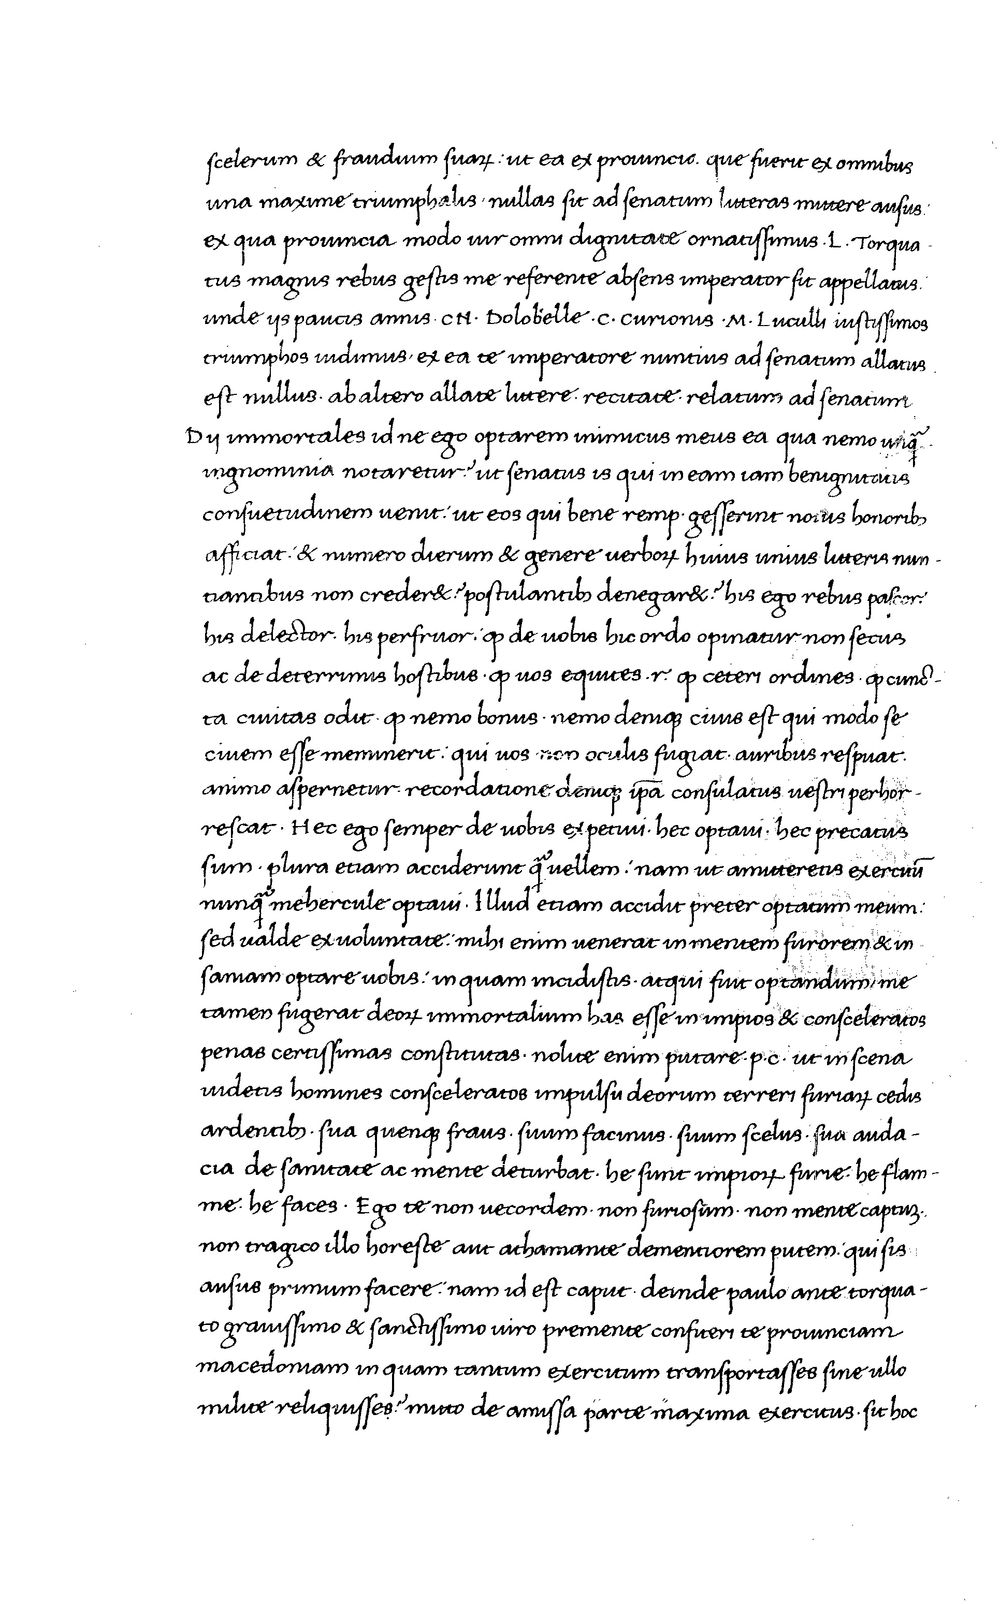 scelerum & fraudium suaꝝ: ut ea ex prouincia. que fuerit ex omnibus
una maxime triumphalis. nullas sit ad senatum litteras mittere ausus:
ex qua prouincia modo uir omni dignitate ornatissimus. L. Torqua-
tus magnis rebus gestis me referente absens imperator sit appellatus.
unde iis paucis annis. CN. Dolobelle. C. Curionis. M. Luculli iustissimos
triumphos uidimus. ex ea te imperatore nuntius ad senatum allatus
est nullus. ab altero allate littere. recitate. relatum ad senatum
Dii immortales id ne ego optarem inimicus meus ea qua nemo unq̃.
ingnominia notaretur? ut senatus is qui in eam iam benignitatis
consuetudinem uenit: ut eos qui bene remp. gesserint nouis honorib;
afficiat: & numero dierum & genere uerboꝝ huius unius litteris nun-
tiantibus non creder&? postulantib; denegar&? his ego rebus pascor:
his delector. his perfruor. ꝙ de uobis hic ordo opinatur non secus
ac de deterrimis hostibus. ꝙ uos equites. r. ꝙ ceteri ordines. ꝙ cunc-
ta ciuitas odit. ꝙ nemo bonus. nemo deniq; ciuis est qui modo se
ciuem esse meminerit: qui uos non oculis fugiat. auribus respuat.
animo aspernetur. recordatione deniq; ip̃a consulatus uestri perhor-
rescat. Hec ego semper de uobis expetiui. hec optaui. hec precatus
sum. plura etiam acciderunt q̃ uellem: nam ut amitteretis exercitũ
nunq̃ mehercule optaui. Illud etiam accidit preter optatum meum:
sed ualde ex uoluntate: mihi enim uenerat in mentem furorem & in
saniam optare uobis: in quam incidistis. atqui fuit optandum. me
tamen fugerat deoꝝ immortalium has esse in impios & consceleratos
penas certissimas constitutas. nolite enim putare. p.c. ut in scena
uidetis homines consceleratos impulsu deorum terreri furiaꝝ cedis
ardentib;. sua quenq; fraus. suum facinus. suum scelus. sua auda-
cia de sanitate ac mente deturbat. he sunt impioꝝ furie. he flam-
me. he faces. Ego te non uecordem. non furiosum. non mente captuꝫ.
non tragico illo horeste aut athamante dementiorem putem: qui sis
ausus primum facere: nam id est caput. deinde paulo ante torqua-
to grauissimo & sanctissimo uiro premente confiteri te prouinciam
macedoniam in quam tantum exercitum transportasses sine ullo
milite reliquisses? mitto de amissa parte maxima exercitus. sit hoc